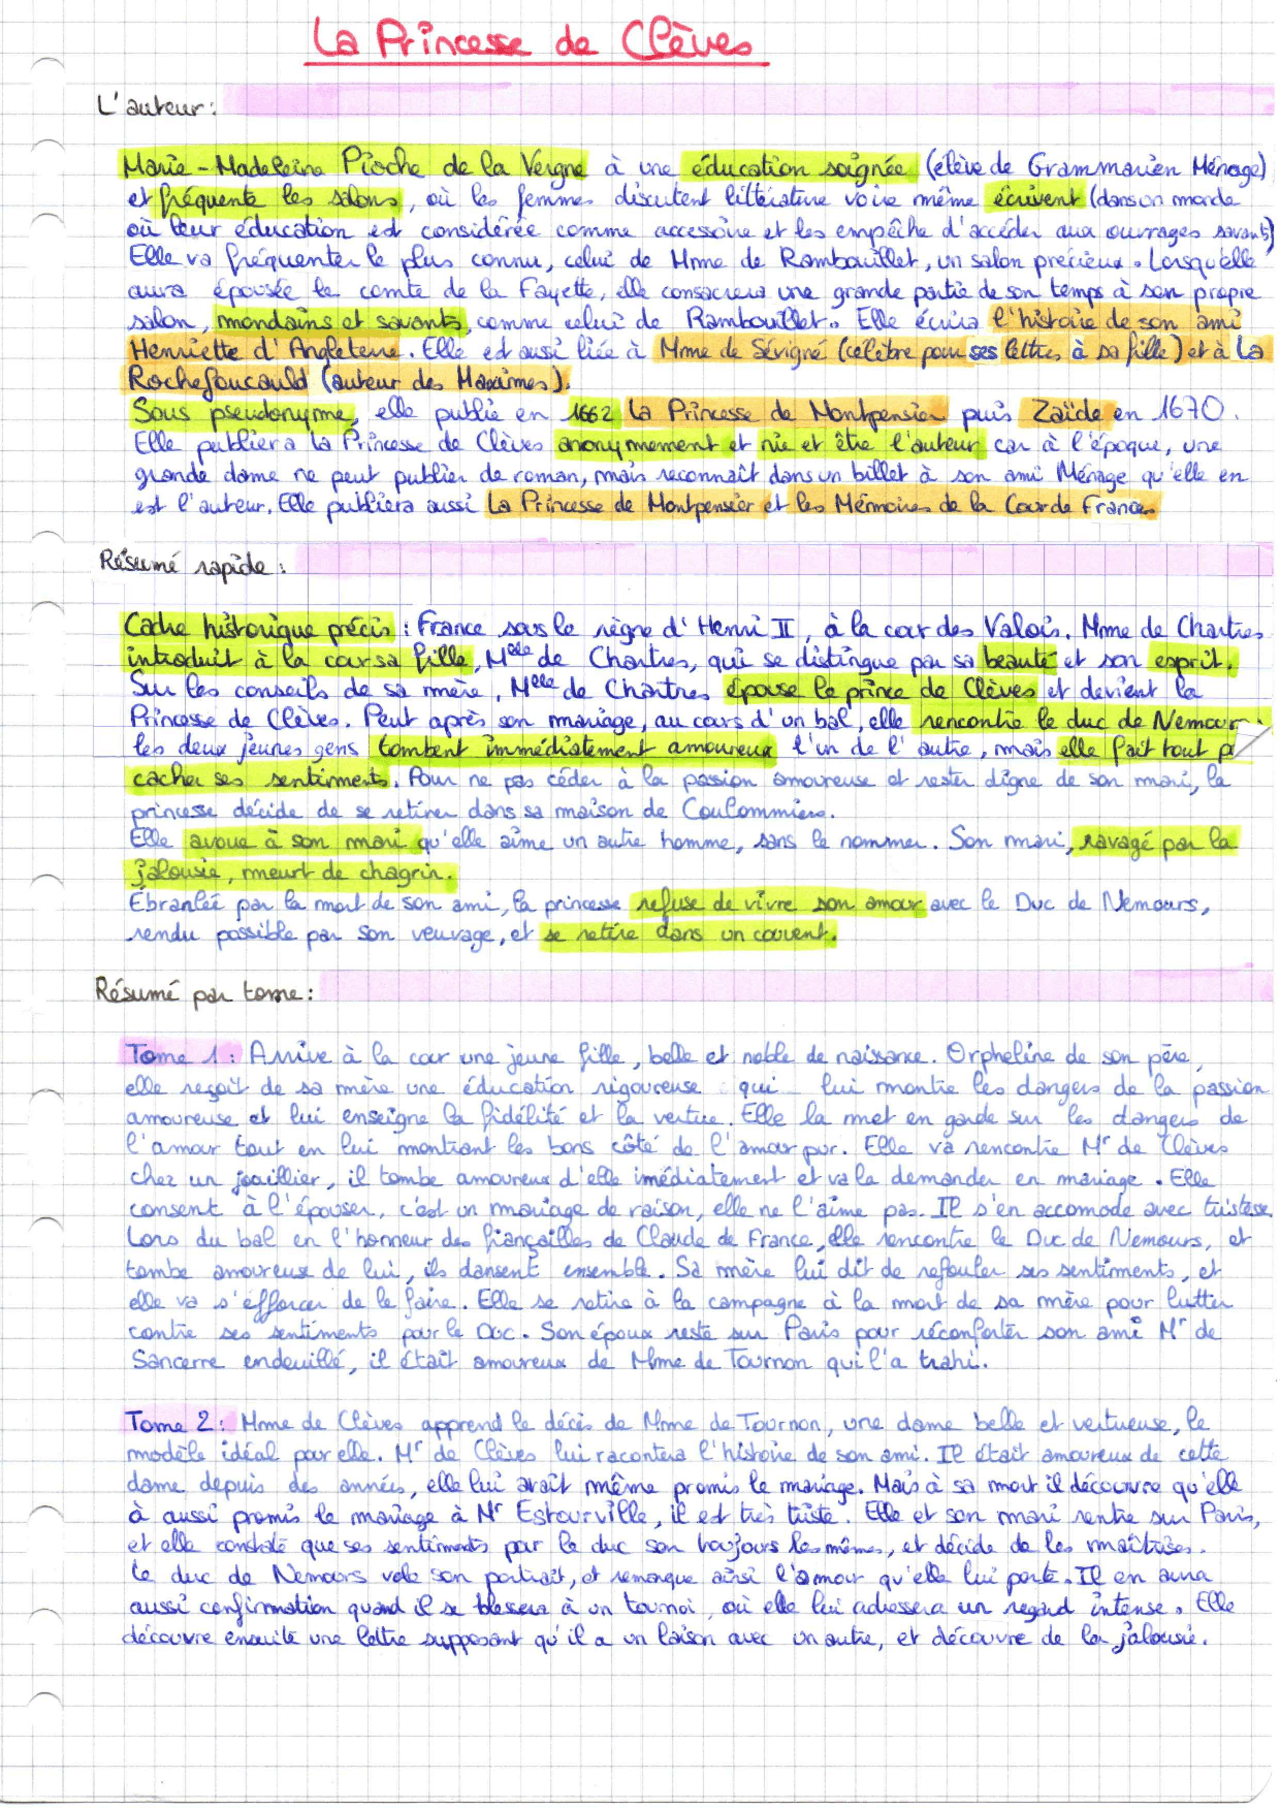 La Princesse de Clèves
L'auteur :
Marie-Madeleine Pioche de la Vergne à une éducation soignée (élève de Grammarien Ménage)
et fréquente les salons, où les femmes discutent littérature voire même écrivent (dans on monde
où leur éducation est considérée comme accessoire et les empêche d'accéder aux ouvrages savants)
Elle va fréquenter le plus connu, celui de Mme de Rambouillet, un salon précieux. Lorsqu'elle
aura épousée le comte de la Fayette, elle consacrera une grande partie de son temps à son propre
salon, mondains et savants, comme celui de Rambouillet. Elle écrira l'histoire de son ami
Henriette d'Angleterre. Elle est aussi liée à Mme de Sévigné (célèbre pour ses lettres à sa fille) et à La
Rochefoucauld (auteur des Maximes).
Sous pseudonyme, elle publie en 1662 La Princesse de Montpensier puis Zaïde en 1670.
Elle publiera la Princesse de Clèves anonymement et nie et être l'auteur car à l'époque, une
grande dame ne peut publier de roman, mais reconnaît dans un billet à son ami Ménage qu'elle en
est l'auteur. Elle publiera aussi La Princesse de Montpensier et les Mémoires de la Cour de France.
Résumé rapide :
Cadre historique précis : France sous le règne d'Henri II, à la cour des Valois. Mme de Chartres
introduit à la cour sa fille, Melle de Chartres, qui se distingue par sa beauté et son esprit.
Sur les conseils de sa mère, Melle de Chartres épouse le prince de Clèves et devient la
Princesse de Clèves. Peut après son mariage, au cours d'un bal, elle rencontre le duc de Nemour
les deux jeunes gens tombent immédiatement amoureux l'un de l'autre, mais elle fait tout
cacher ses sentiments. Pour ne pas céder à la passion amoureuse et rester digne de son mari, la
princesse décide de se retirer dans sa maison de Coulommiers.
Elle avoue à son mari qu'elle aime un autre homme, sans le nommer. Son mari, ravagé par la
jalousie, meurt de chagrin.
Ébranlée par la mort de son ami, la princesse refuse de vivre son amour avec le Duc de Nemours,
rendu possible par son veuvage, et se retire dans un couvent.
Résumé par tome :
Tome 1 : Arrive à la cour une jeune fille, belle et noble de naissance. Orpheline de son père,
elle reçoit de sa mère une éducation rigoureuse qui lui montre les dangers de la passion
amoureuse et lui enseigne la fidélité et la vertue. Elle la met en garde sur les dangers de
l'amour tout en lui montrant les bons côté de l'amour pur. Elle va rencontre Mr de Clèves
chez un joaillier, il tombe amoureux d'elle imédiatement et va la demander en mariage. Elle
consent à l'épouser, c'est un mariage de raison, elle ne l'aime pas. Il s'en accomode avec tristesse.
Lors du bal en l'honneur des fiançailles de Claude de France, elle rencontre le Duc de Nemours, et
tombe amoureuse de lui, ils dansent ensemble. Sa mère lui dit de refouler ses sentiments, et
elle va s'efforcer de le faire. Elle se retire à la campagne à la mort de sa mère pour lutter
contre ses sentiments pour le Duc. Son époux reste sur Paris pour réconforter son ami Mr de
Sancerre endeuillé, il était amoureux de Mme de Tournon qui l'a trahi.
Tome 2 : Mme de Clèves apprend le décès de Mme de Tournon, une dame belle et vertueuse, le
modèle idéal pour elle. Mr de Clèves lui racontera l'histoire de son ami. Il était amoureux de cette
dame depuis des années, elle lui avait même promis le mariage. Mais à sa mort il découvre qu'elle
à aussi promis le mariage à Mr Estourville, il est très triste. Elle et son mari rentre sur Paris,
et elle constate que ses sentiments pour le duc son toujours les mêmes, et décide de les maîtriser.
Le duc de Nemours vole son portrait, et remarque ainsi l'amour qu'elle lui porte. Il en aura
aussi confirmation quand il se blessera à un tournoi, où elle lui adressera un regard intense. Elle
découvre ensuite une lettre supposant qu'il a un laison avec un autre, et découvre de la jalousie.